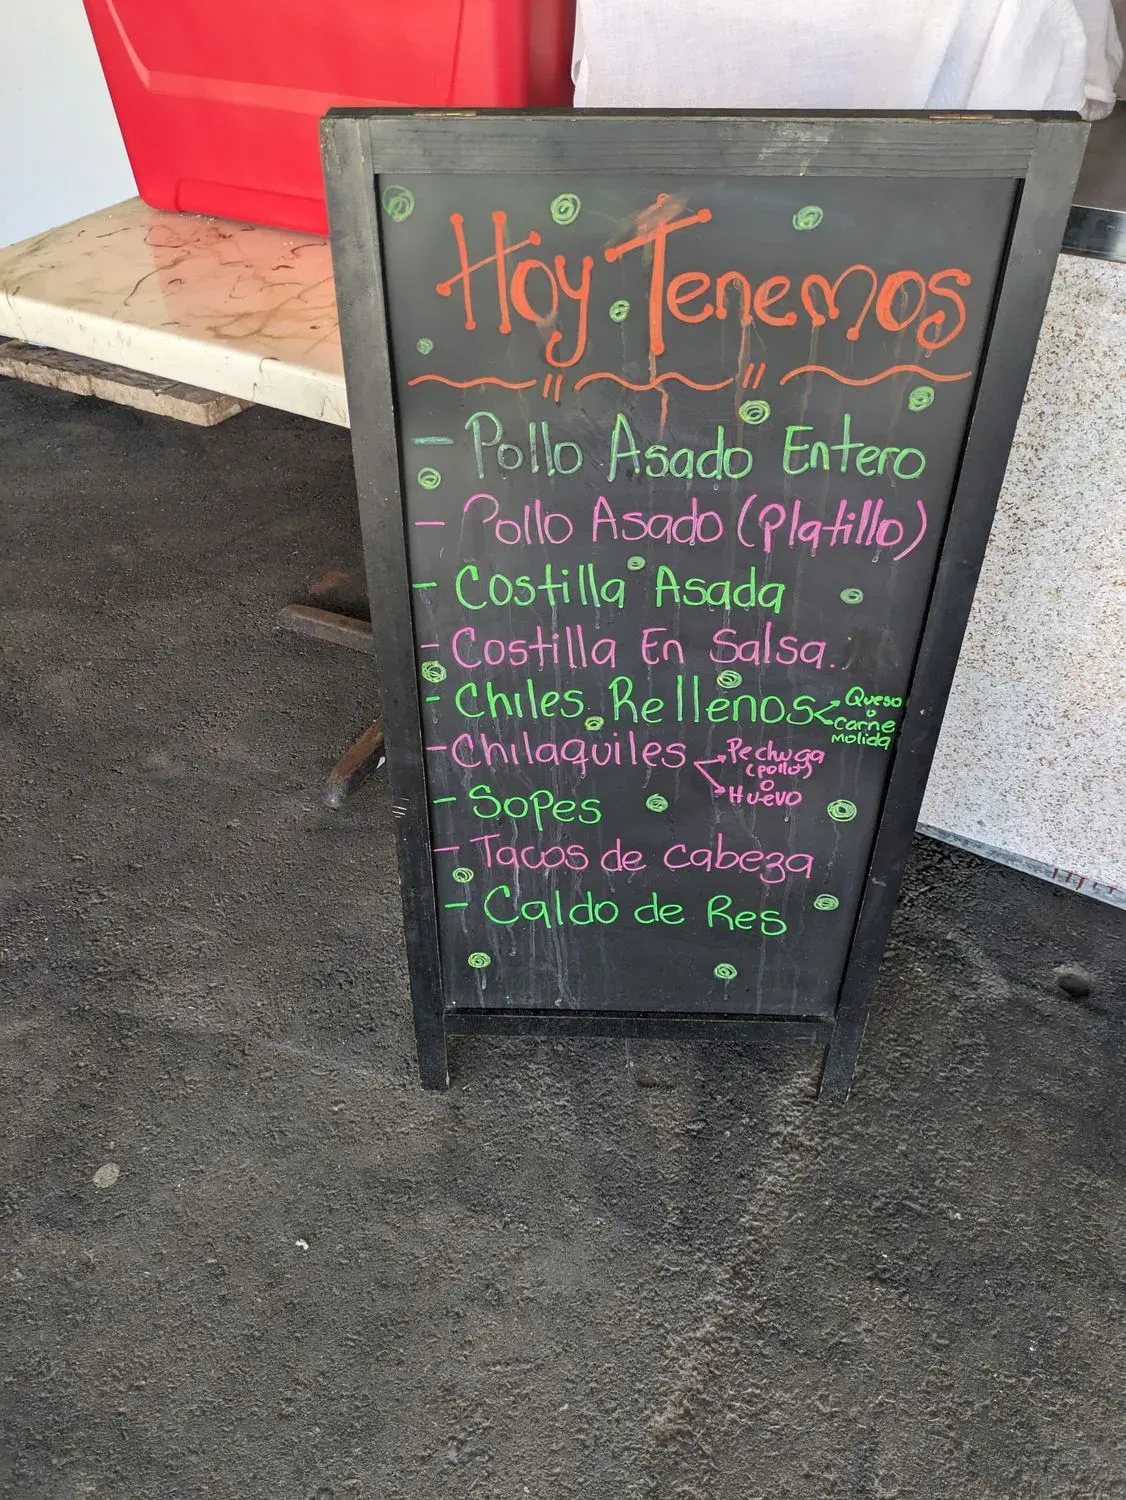 Hoy Tenemos
- Pollo Asado Entero
- Pollo Asado (Platillo)
- Costilla Asada
- Costilla En Salsa.
- Chiles Rellenos
Queso
o
Carne
Molida
- Chilaquiles
Pechuga
(pollo)
o
Huevo
- Sopes
- Tacos de Cabeza
- Caldo de Res